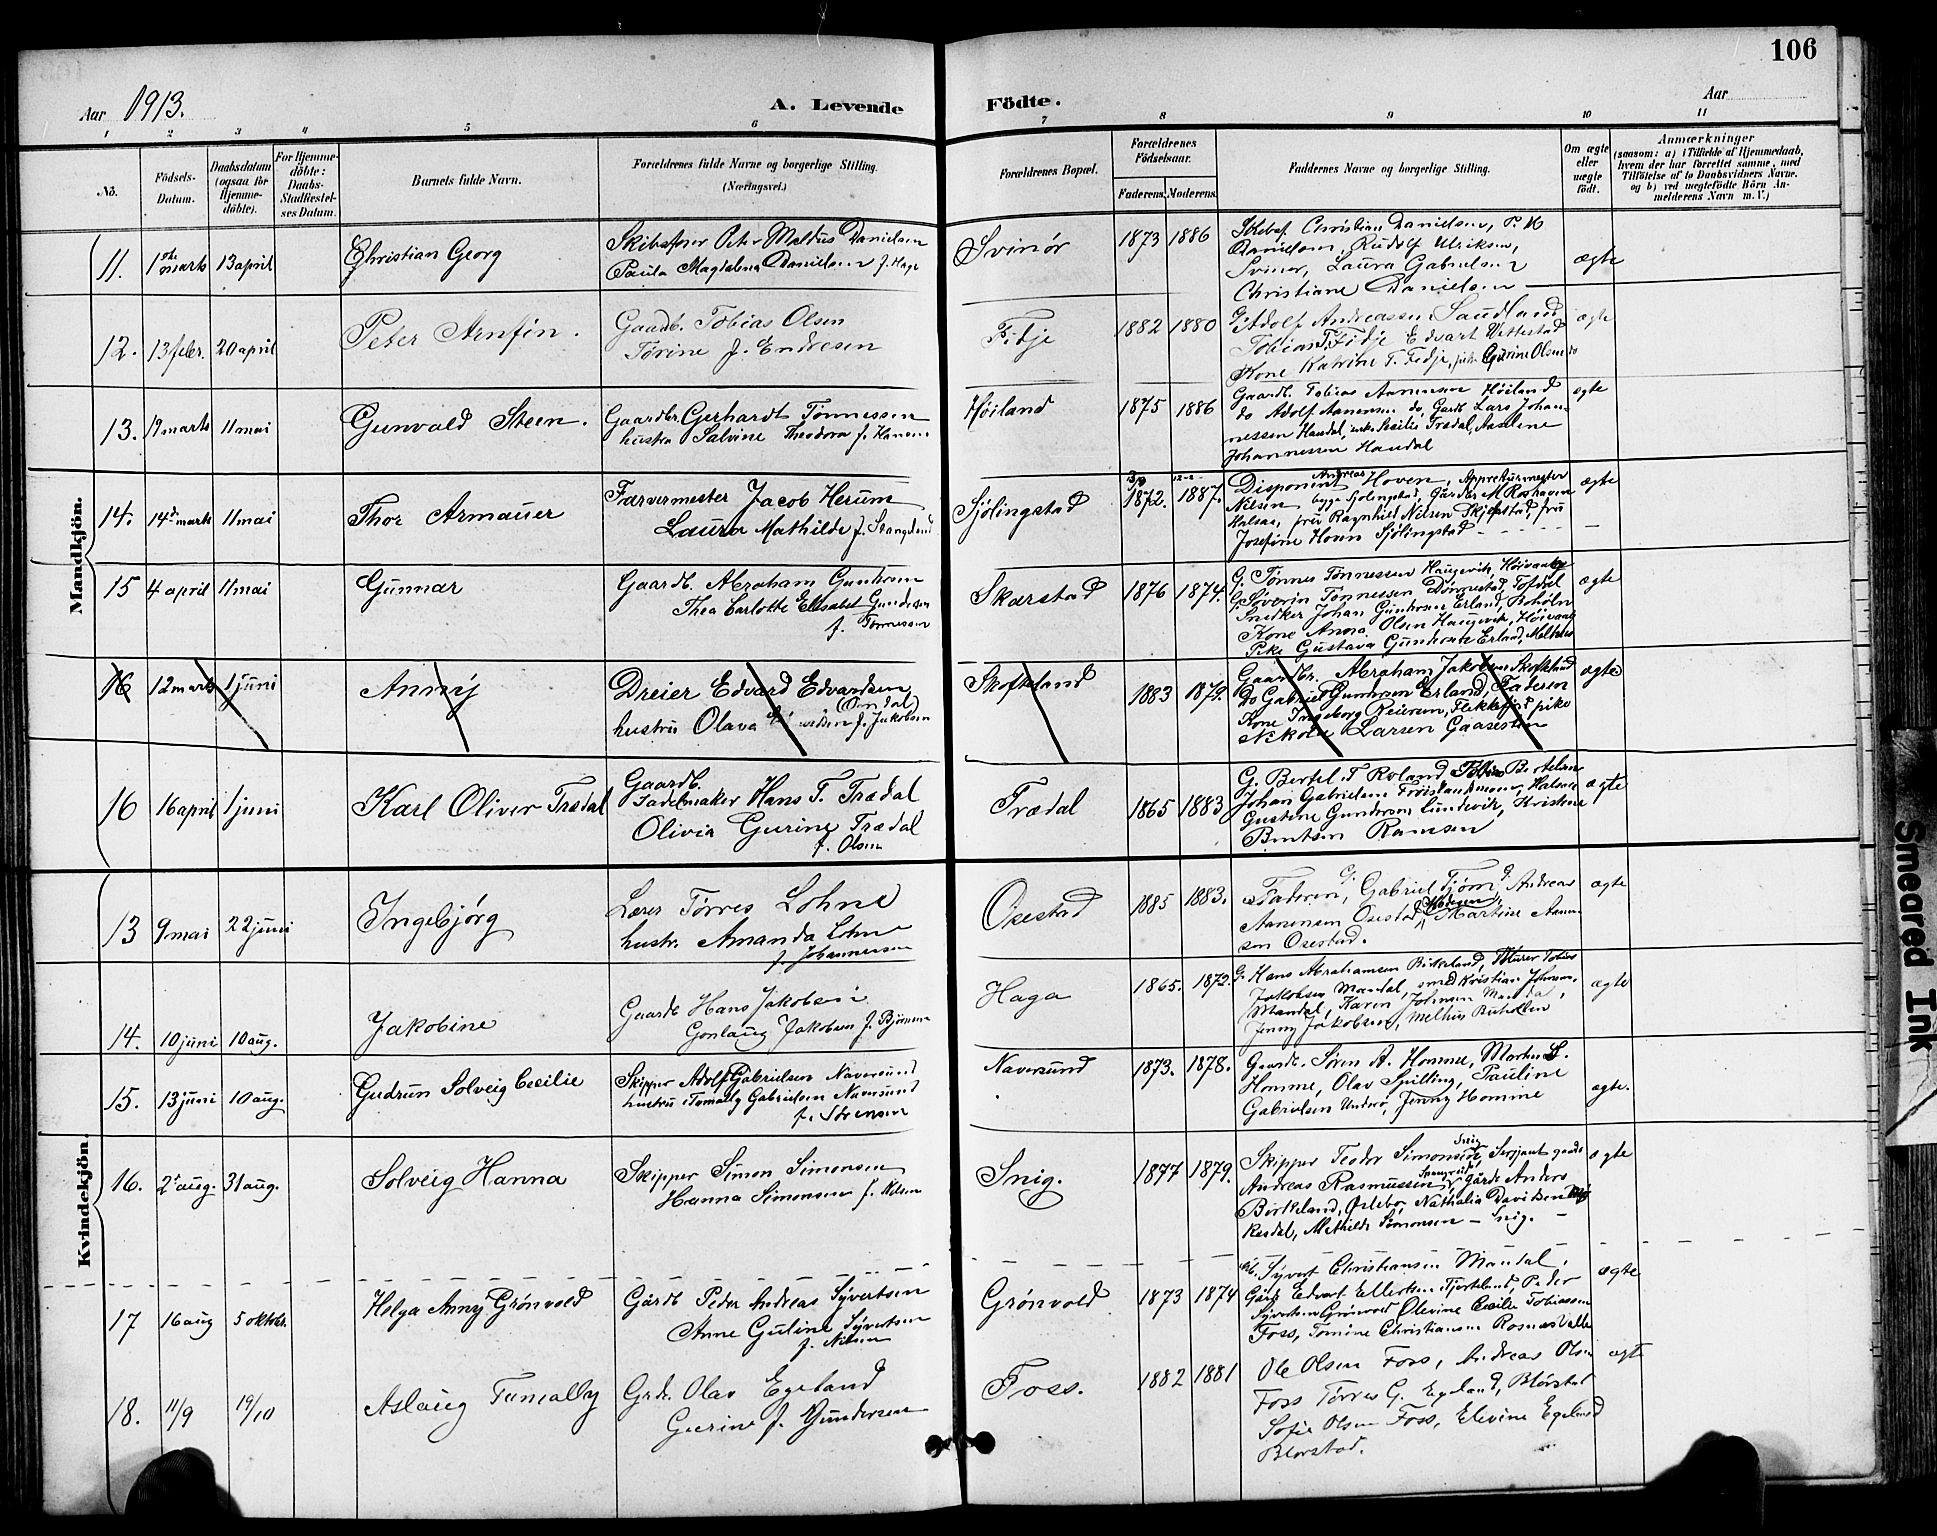 106
Aar 1913.
A. Levende Födte.
Aar
1 2 3 4 5 6 7 8 9 10 11
No.
Födsels-Datum.
Daabsdatum (ogsaa for Hjemme-döbte).
For Hjemme-döbte: Daabs-Stadfæstel-ses Datum.
Barnets fulde Navn.
Forældrenes fulde Navne og borgerlige Stilling.
(Næringsvei.)
Forældrenes Bopæl.
Forældrenes Födselsaar.
Faderens. Moderens.
Faddernes Navne og borgerlige Stilling.
Om ægte eller uægte födt.
Anmærkninger
(saasom: a) i Tilfælde af Hjemmedaab,
hvem der har forrettet samme, med
Tilföielse af to Daabsvidners Navne,
og b) ved uægtefödte Börn An-
melderens Navn m. V.)
Mandkjön.
11. 1ste marts 13 april Christian Georg
Peter Meldus Danielsen
Paula Magdalena Danielsen f. Hage
Svinør 1873 1886
Christian Danielsen, P. M
Danielsen, Rudolf Ulriksen,
Svinør, Laura Gabrielsen
Christiane Danielsen
ægte
12. 13 febr. 20 april Peter Arnfin.
Gaardb. Tobias Olsen
Tørine f. Endresen
Fidje 1882 1880
G. Adolf Andreassen Saudland
Tobias T. Fidje Edvart Vittestad
Kone Katrine T. Fidje, pike Gurine Olsen do
ægte
13. 19 marts 11 mai Gunvald Steen.
Gaardbr Gerhardt Tønnessen
hustru Salvine Theodora f. Hansen
Høiland 1875 1886
Gaardb. Tobias Aanensen Høiland
do Adolf Aanensen do, Gardb Lars Johan-
nessen Haudal, Trædal, Aaselene
Johannessen Haudal
ægte
14. 14de marts 11 mai Thor Armauer
Farvermester Jacob Herum
Laura Mathilde f. Stangeland
Sjölingstad 3/9 1872. 12-2- 1887.
Disponent Andreas Hoven, Appreturmester
Nilsen begge Sjölingstad, Gårdbr M Roshaven
Halsaa, frû Ragnhild Nilsen Skjepstad, frû
Josefine Hoven Sjölingstad
ægte
15 4 april 11 mai Gunnar
Gaardb. Abraham Gundersen
Thea Carlotte Elisabet Gundersen
f. Tønnessen
Skarstad 1876 1874.
G. Tønnes Tønnessen Haugevik, Høivaag
G. Severin Tønnessen Dønnestad, Tofdal
Snedker Johan Gundersen Erland, Boholm
Kone Anna Olsen Haugevik, Høivaag
Pike Gustava Gundersen Erland, Melhus
ægte
16 12 marts 1 juni Anny
Dreier Edvard Edvardsen
(Omdal)
hustru Olava f. Jakobsen
Skofteland 1883 1879.
Gaardbr. Abraham Jakobsen Skofteland
Do Gabriel Gundersen Erland, Faderen
Kone Ingeborg Reiersen, Flekkefjord pike
Nikoline Larsen Gaasestein
ægte
16 16 april 1 juni Karl Oliver Trædal
Gaardb.
Sadelmaker Hans T. Trædal
Olivia Gurine Trædal
f. Olsen
Trædal 1865 1883
G. Bertel T Roland Bertelsen
Johan Gabrielsen Halsaa
Gustine Gundersen Lundevik, Kristine
Bentsen Ramsen
ægte
Kvindekjön.
13 9 mai 22 juni Ingebjørg
Lærer Tørres Lohne
hustr. Amanda Lohne
f. Johannessen
Øsestad 1885 1883.
Faderen, G. Gabriel Fjøm, G. Andreas
Aanensen Øsestad, Moderen, Martine Aanen-
sen Osestad.
ægte
14. 10 juni 10 aug. Jakobine
Gaardb Hans Jakobsen
Gonlaug Jakobsen f. Bjørnsen
Haga 1865. 1872.
G. Hans Abrahamsen Birkeland, Murer Tobias
Jakobsen Mandal, smed Kristian Johnsen
Mandal, Karen Johnsen Mandal,
Jenny Jakobsen, Melhus Buholen
ægte
15. 13 juni 10 aug. Gudrun Solveig Cecilie
Skipper Adolf Gabrielsen Naversund
hustru Tomally Gabrielsen Naversund
f. Sørensen
Naversund 1873. 1878.
Gaardb. Søren A. Homme, Morten S.
Homme, Olav Spilling, Pauline
Gabrielsen Underø, Jenny Homme
ægte.
16. 2 aug. 31 aug. Solveig Hanna
Skipper Simon Simonsen
Hanna Simonsen f. Nilsen
Snig. 1877 1879.
Skipper Teodor Simonsen Snig, Serjant
Andreas Rasmussen Spangereid, Gårdb Anders
Birkeland, Øslebø, Nathalia Davidsen
Mathilde Simonsen — Snig. —
ægte
17 16 aug 5 oktbr. Helga Anny Grønvold
Gårdb Peder Andreas Syvertsen
Anne Guline Syvertsen
f. Nilsen
Grønvold 1873 1874
Syvert Christiansen Mandal,
Gårdb Edvart Ellertsen Fjorteland, Peder
Syvertsen Grønvold Olevine Cecilie Tobiassen
Foss, Tomine Christiansen Rosnesvalle
ægte
18. 11/9 19/10 Aslaug Tomally
Grdb. Olav Egeland
Gurine f. Gundersen
Foss. 1882 1881
Ole Olsen Foss, Andreas Olsen
Foss Tørres G. Egeland, Blørstad
Sofie Olsen Foss, Elevine Egeland
Blørstad.
ægte
Smeared Ink